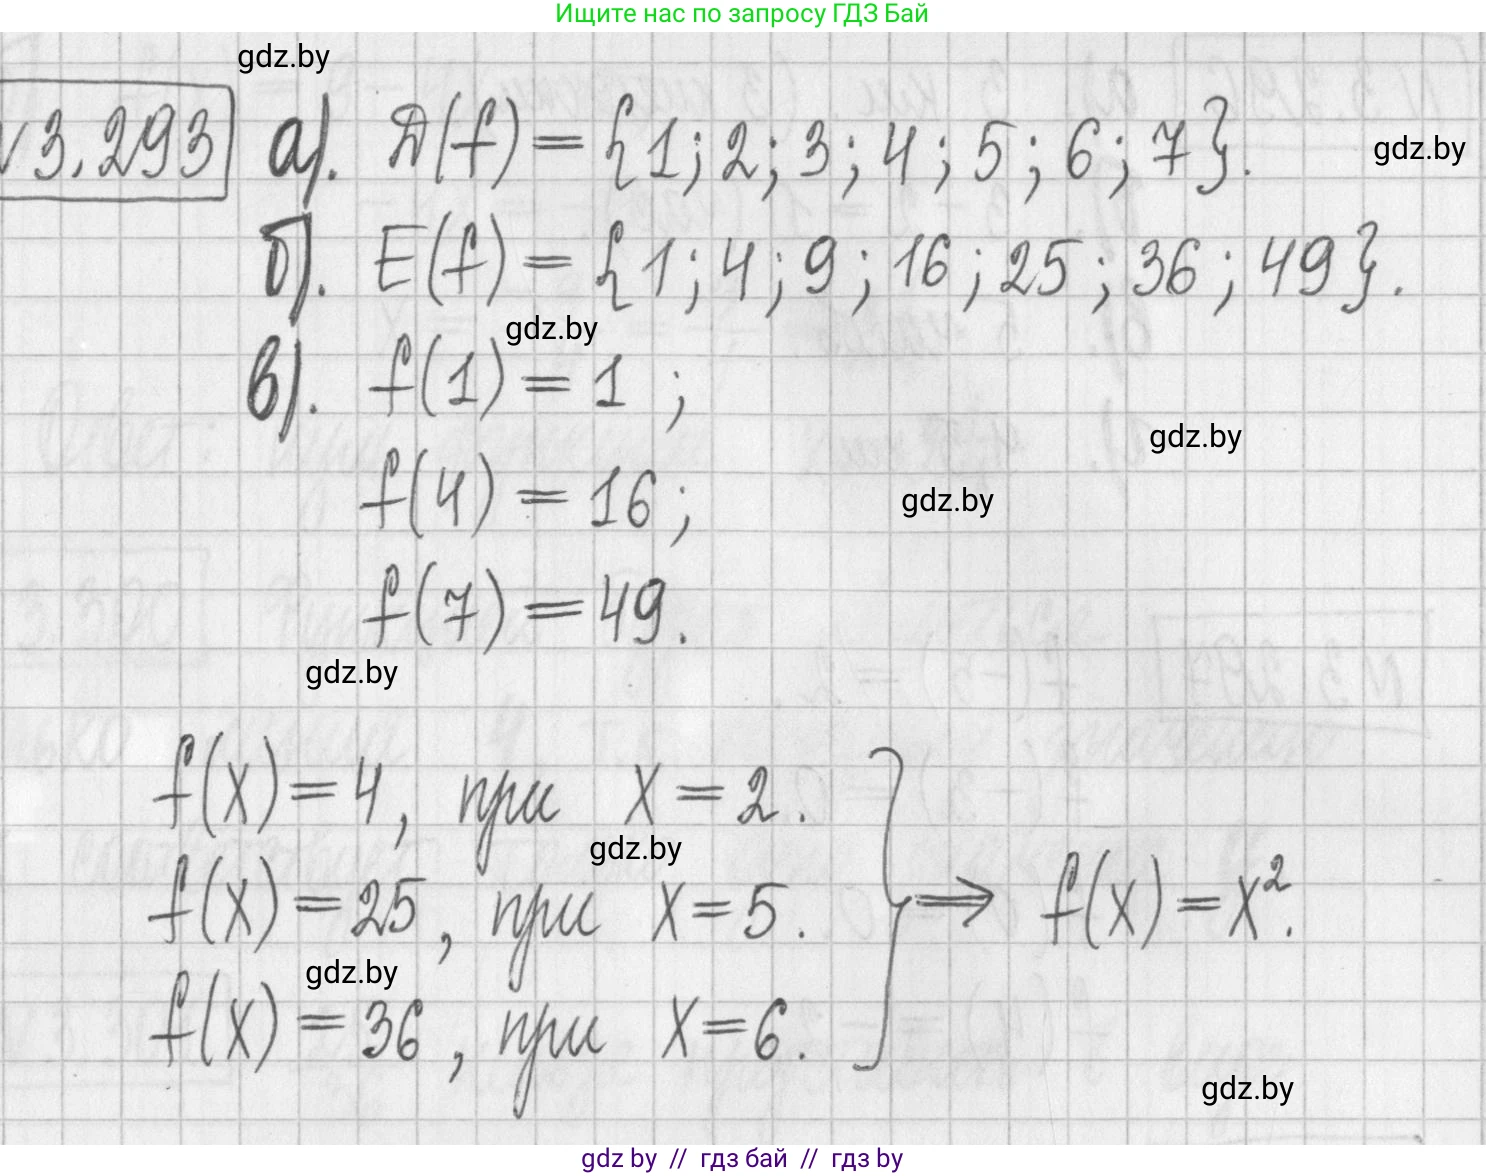 Ищите нас по запросу ГДЗ Бай
gdz.by
№3.293 а). D(f) = {1; 2; 3; 4; 5; 6; 7}.
gdz.by
б). E(f) = {1; 4; 9; 16; 25; 36; 49}.
gdz.by
в). f(1) = 1 ;
gdz.by
f(4) = 16;
gdz.by
f(7) = 49.
gdz.by
f(x) = 4, при x = 2.
gdz.by
f(x) = 25, при x = 5. ⟹ f(x) = x².
gdz.by
f(x) = 36, при x = 6.
gdz.by
gdz by // гдз бай // гдз by